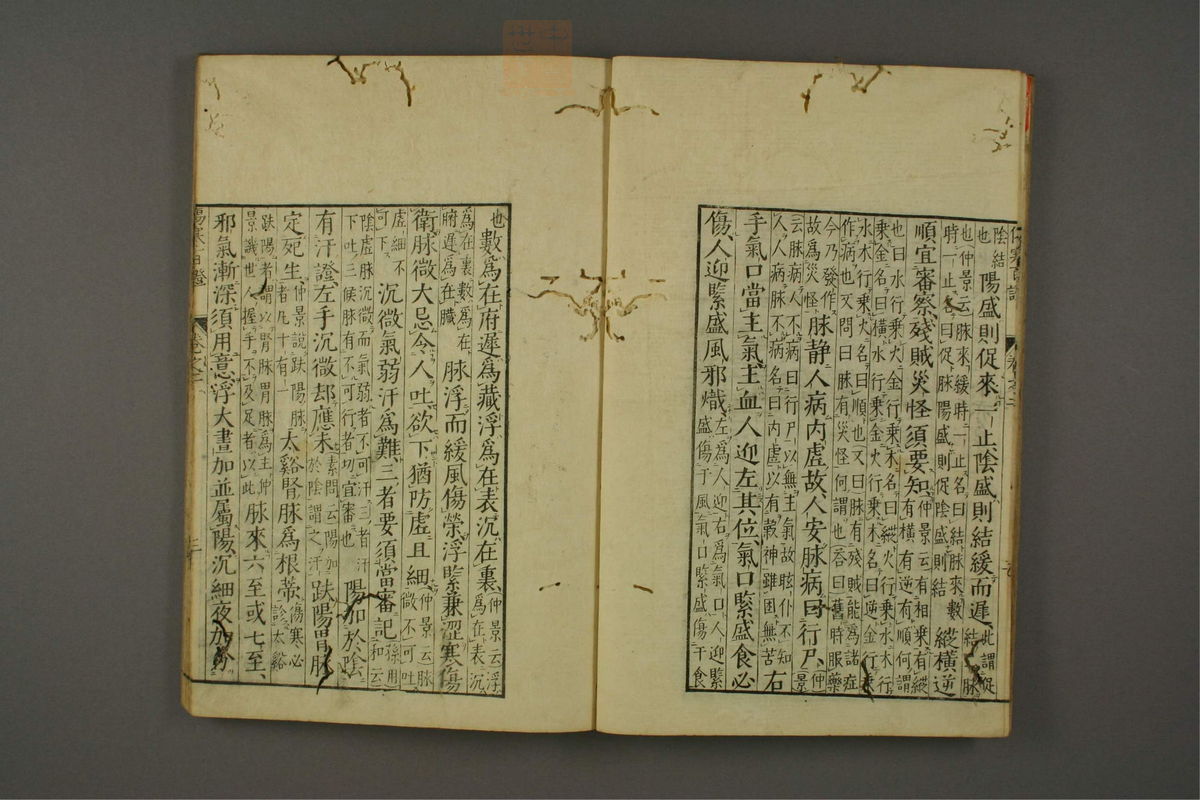 陰結也陽盛則促來一止陰盛則結緩而遲此謂促結脉
也仲景云脉來緩時一止名曰結脉來數時一止名曰促脉陽盛則促陰盛則結縱橫逆
順宜審察殘賊災怪須要知仲景云有相乗有縱有橫有逆有順何謂
也曰水行乗火金行乗木名曰縱火行乗水木行乗金名曰橫水行乗金火行乗木名曰逆金行乗
水木行乗火名曰順也又曰脉有殘賊能為諸症作病也又問曰脉有災怪何謂也答曰舊時服藥
今乃發作故為災怪脉静人病内虗故人安脉病曰行尸仲景
云脉病人不病曰行尸以無主氣故眩仆不知人人病脉不病名曰内虗以有穀神雖困無苦右
手氣口當主氣主血人迎左其位氣口緊盛食必
傷人迎緊盛風邪熾左為人迎右為氣口人迎緊盛傷于風氣口緊盛傷于食
也數為在府遲為藏浮為在表沉在裏仲景云浮為在表沉
為在裏數為在府遲為在臓脉浮而緩風傷榮浮緊兼澀寒傷
衛脉微大忌令人吐欲下猶防虗且細仲景云脉微不可吐
虗細不可下沉微氣弱汗為難三者要須當審記孫用和云
陰虗脉沉微而氣弱者不可汗三者汗下吐三候脉有不可行者切宜審也陽加於陰
有汗證左手沉微却應未素問云陽加於陰謂之汗趺陽胃脉
定死生仲景説趺陽脉者凡十有一太谿腎脉為根蒂傷寒必診太谿
趺陽者謂以腎脉胃脉為主仲景譏世人握手不及足者以此脉來六至或七至
邪氣漸深須用意浮大晝加並屬陽沉細夜加分